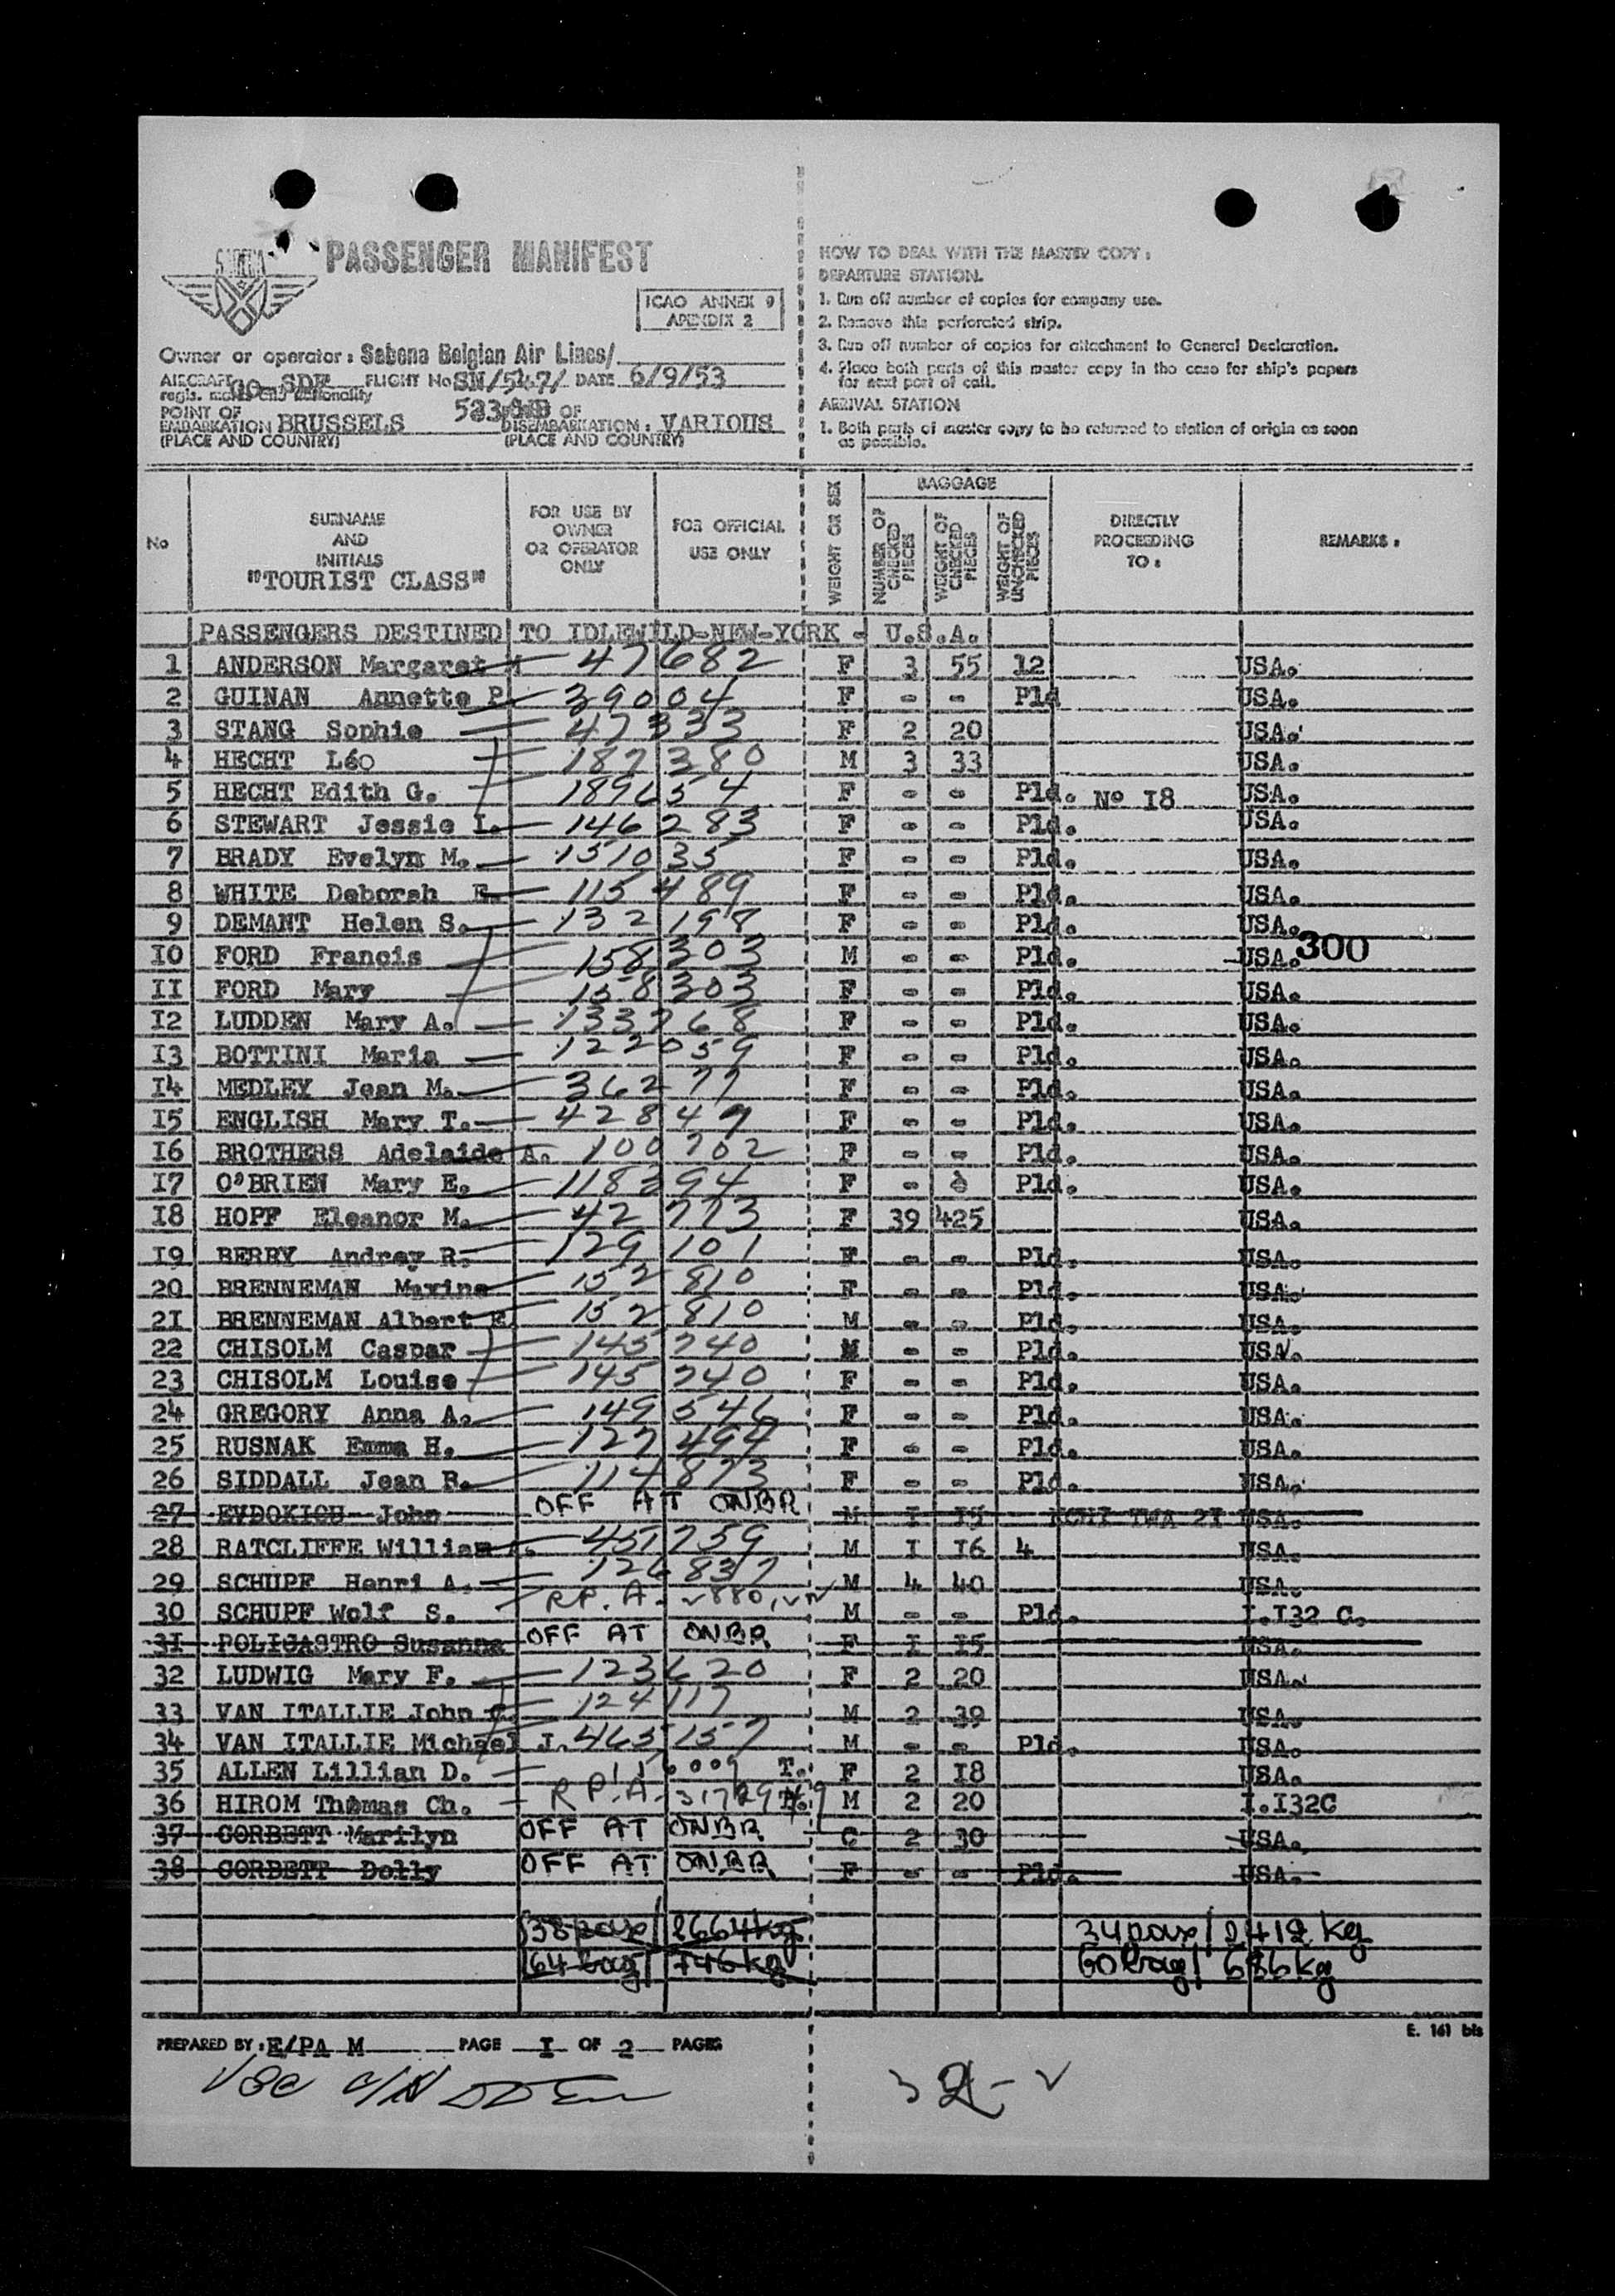 SABENA
PASSENGER MANIFEST
ICAO ANNEX 9
APENDIX 2
Owner or operator : Sabena Belgian Air Lines/
AIRCRAFT OO-SDF FLIGHT No SN/547/ DATE 6/9/53
regis. marks and nationality
POINT OF 523 OF
EMBARKATION BRUSSELS DISEMBARKATION : VARIOUS
(PLACE AND COUNTRY) (PLACE AND COUNTRY)
HOW TO DEAL WITH THE MASTER COPY :
DEPARTURE STATION.
1. Run off number of copies for company use.
2. Remove this perforated strip.
3. Run off number of copies for attachment to General Declaration.
4. Place both parts of this master copy in the case for ship's papers
for next port of call.
ARRIVAL STATION
1. Both parts of master copy to be returned to station of origin as soon
as possible.
No
SURNAME
AND
INITIALS
"TOURIST CLASS"
FOR USE BY
OWNER
OR OPERATOR
ONLY
FOR OFFICIAL
USE ONLY
WEIGHT OR SEX
BAGGAGE
NUMBER OF
CHECKED
PIECES
WEIGHT OF
CHECKED
PIECES
WEIGHT OF
UNCHECKED
PIECES
DIRECTLY
PROCEEDING
TO :
REMARKS :
PASSENGERS DESTINED TO IDLEWILD-NEW-YORK - U.S.A.
1 ANDERSON Margaret M 47682 F 3 55 12 USA.
2 GUINAN Annette P. 39004 F - - Pld USA.
3 STANG Sophie 47333 F 2 20 USA.
4 HECHT Léo 187380 M 3 33 USA.
5 HECHT Edith G. 189654 F - - Pld. No I8 USA.
6 STEWART Jessie I. 146283 F - - Pld. USA.
7 BRADY Evelyn M. 151035 F - - Pld. USA.
8 WHITE Deborah E. 115489 F - - Pld. USA.
9 DEMANT Helen S. 132198 F - - Pld. USA.
I0 FORD Francis 158303 M - - Pld. USA. 300
II FORD Mary 158303 F - - Pld. USA.
I2 LUDDEN Mary A. 133768 F - - Pld. USA.
I3 BOTTINI Maria 122059 F - - Pld. USA.
I4 MEDLEY Jean M. 36277 F - - Pld. USA.
I5 ENGLISH Mary T. 42849 F - - Pld. USA.
I6 BROTHERS Adelaide A. 100702 F - - Pld. USA.
I7 O'BRIEN Mary E. 118394 F - - Pld. USA.
I8 HOPF Eleanor M. 42773 F 39 425 USA.
I9 BERRY Andrey R. 129101 F - - Pld. USA.
20 BRENNEMAN Maxine 152810 F - - Pld. USA.
2I BRENNEMAN Albert E. 152810 M - - Pld. USA.
22 CHISOLM Caspar 145740 M - - Pld. USA.
23 CHISOLM Louise 145740 F - - Pld. USA.
24 GREGORY Anna A. 149546 F - - Pld. USA.
25 RUSNAK Emma H. 127494 F - - Pld. USA.
26 SIDDALL Jean R. 114873 F - - Pld. USA.
27 EVDOKICH John OFF AT ONBR M I I5 TWA 2I USA.
28 RATCLIFFE William 451759 M I I6 4 USA.
29 SCHUPF Henri A. 126837 M 4 40 USA.
30 SCHUPF Wolf S. R.P.A. M - - Pld. I.I32 C.
3I POLICASTRO Susanna OFF AT ONBR F I I5 USA.
32 LUDWIG Mary F. 123620 F 2 20 USA.
33 VAN ITALLIE John 124117 M 2 39 USA.
34 VAN ITALLIE Michael J. 465157 M - - Pld. USA.
35 ALLEN Lillian D. T. F 2 I8 USA.
36 HIROM Thomas Ch. R.P.A. M 2 20 I.I32C
37 CORBETT Marilyn OFF AT ONBR C 2 30 USA.
38 CORBETT Dolly OFF AT ONBR F - - Pld. USA.
38 pax/ 2664 kg 34 pax/ 2412 kg
64 bag/ 746 kg 60 bag/ 686 kg
E. 161 bis
PREPARED BY : E/PA M PAGE I OF 2 PAGES